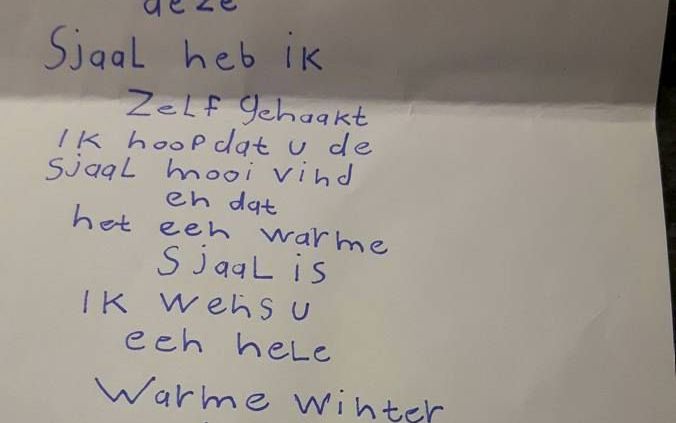 deze
Sjaal heb ik
Zelf gehaakt
Ik hoop dat u de
Sjaal mooi vind
en dat
het een warme
Sjaal is
Ik wens u
een hele
Warme winter